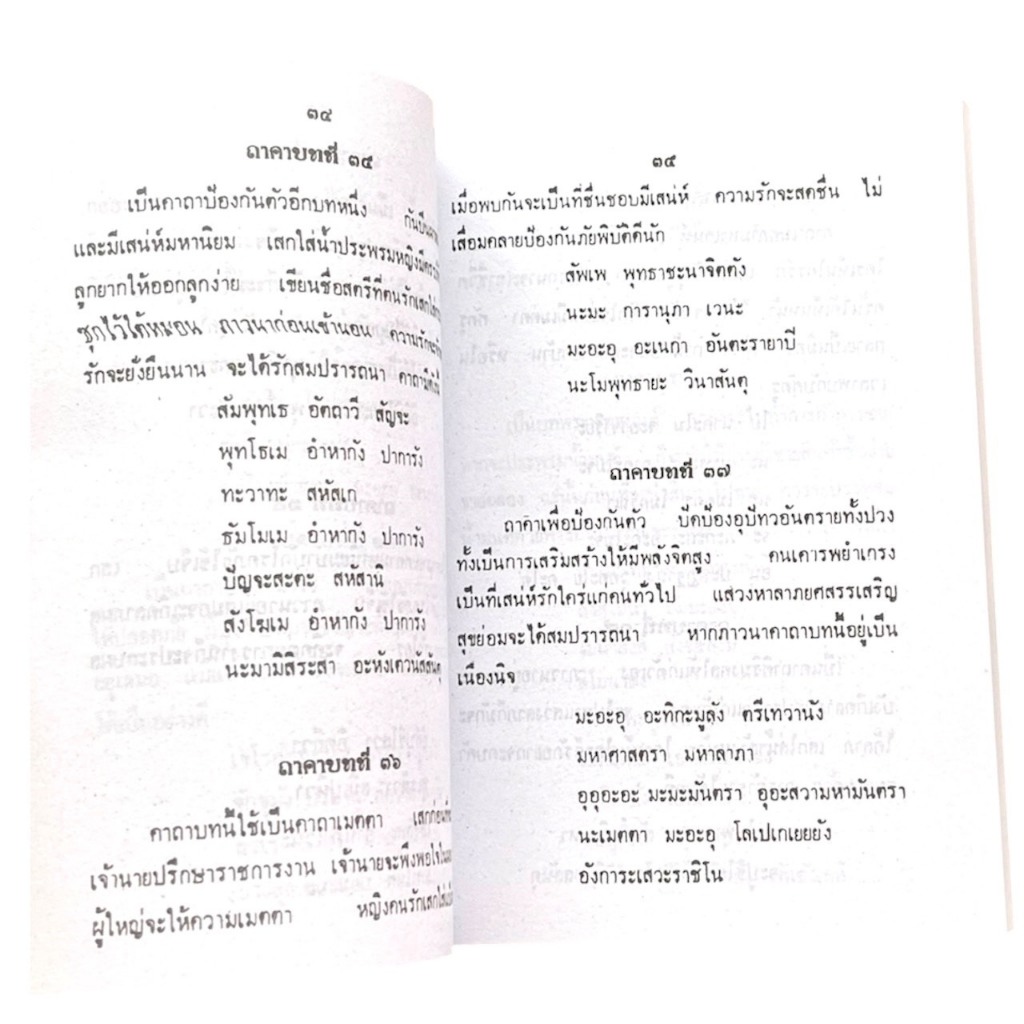 ๓๔
ถาคาบทที่ ๓๕
เป็นคาถาป้องกันตัวอีกบทหนึ่ง
และมีเสน่ห์มหานิยม เสกใส่น้ำประพรมหญิงมีครรภ์
ลูกยากให้ออกลูกง่าย เขียนชื่อสตรีที่ตนรักเสกใส่
ซุกไว้ใต้หมอน ถาวนาก่อนเข้านอน ความรัก
รักจะยั่งยืนนาน จะได้รักสมปรารถนา คาถามีดังนี้
สัมพุทเธ อัตถาวี สัญจะ
พุทโธเม อำหากัง ปาการัง
ทะวาทะ สหัสเก
ธัมโมเม อำหากัง ปาการัง
ปัญจะสะตะ สหัสานิ
สังโฆเม อำหากัง ปาการัง
นะมามิสิระสา
ถาคาบทที่ ๓๖
คาถาบทนี้ใช้เป็นคาถาเมตตา
เจ้านายปรึกษาราชการงาน เจ้านายจะพึงพอใจ
ผู้ใหญ่จะให้ความเมตตา หญิงคนรักเสกใส่
๓๕
เมื่อพบกันจะเป็นที่ชื่นชอบมีเสน่ห์ ความรักจะสดชื่น ไม่
เสื่อมคลายป้องกันภัยพิบัติดีนัก
สัพเพ พุทธาชะนาจิตตัง
นะมะ การานุภา เวนะ
มะอะอุ อะเนกา อันตะรายาปี
นะโมพุทธายะ วินาสันตุ
ถาคาบทที่ ๓๗
ถาคาเพื่อป้องกันตัว ปัดป้องอุบัทวอันตรายทั้งปวง
ทั้งเป็นการเสริมสร้างให้มีพลังจิตสูง คนเคารพยำเกรง
เป็นที่เสน่ห์รักใคร่แก่คนทั่วไป แสวงหาลาภยศสรรเสริญ
สุขย่อมจะได้สมปรารถนา หากภาวนาคาถาบทนี้อยู่เป็น
เนืองนิจ
มะอะอุ อะทิกะมูลัง ตรีเทวานัง
มหาศาสตรา มหาลาภา
อุอุอะอะ มะมะมันตรา อุอะสวามหามันตรา
นะเมตตา มะอะอุ โลเปเกเยยยัง
อังการะเสวะราชิโน